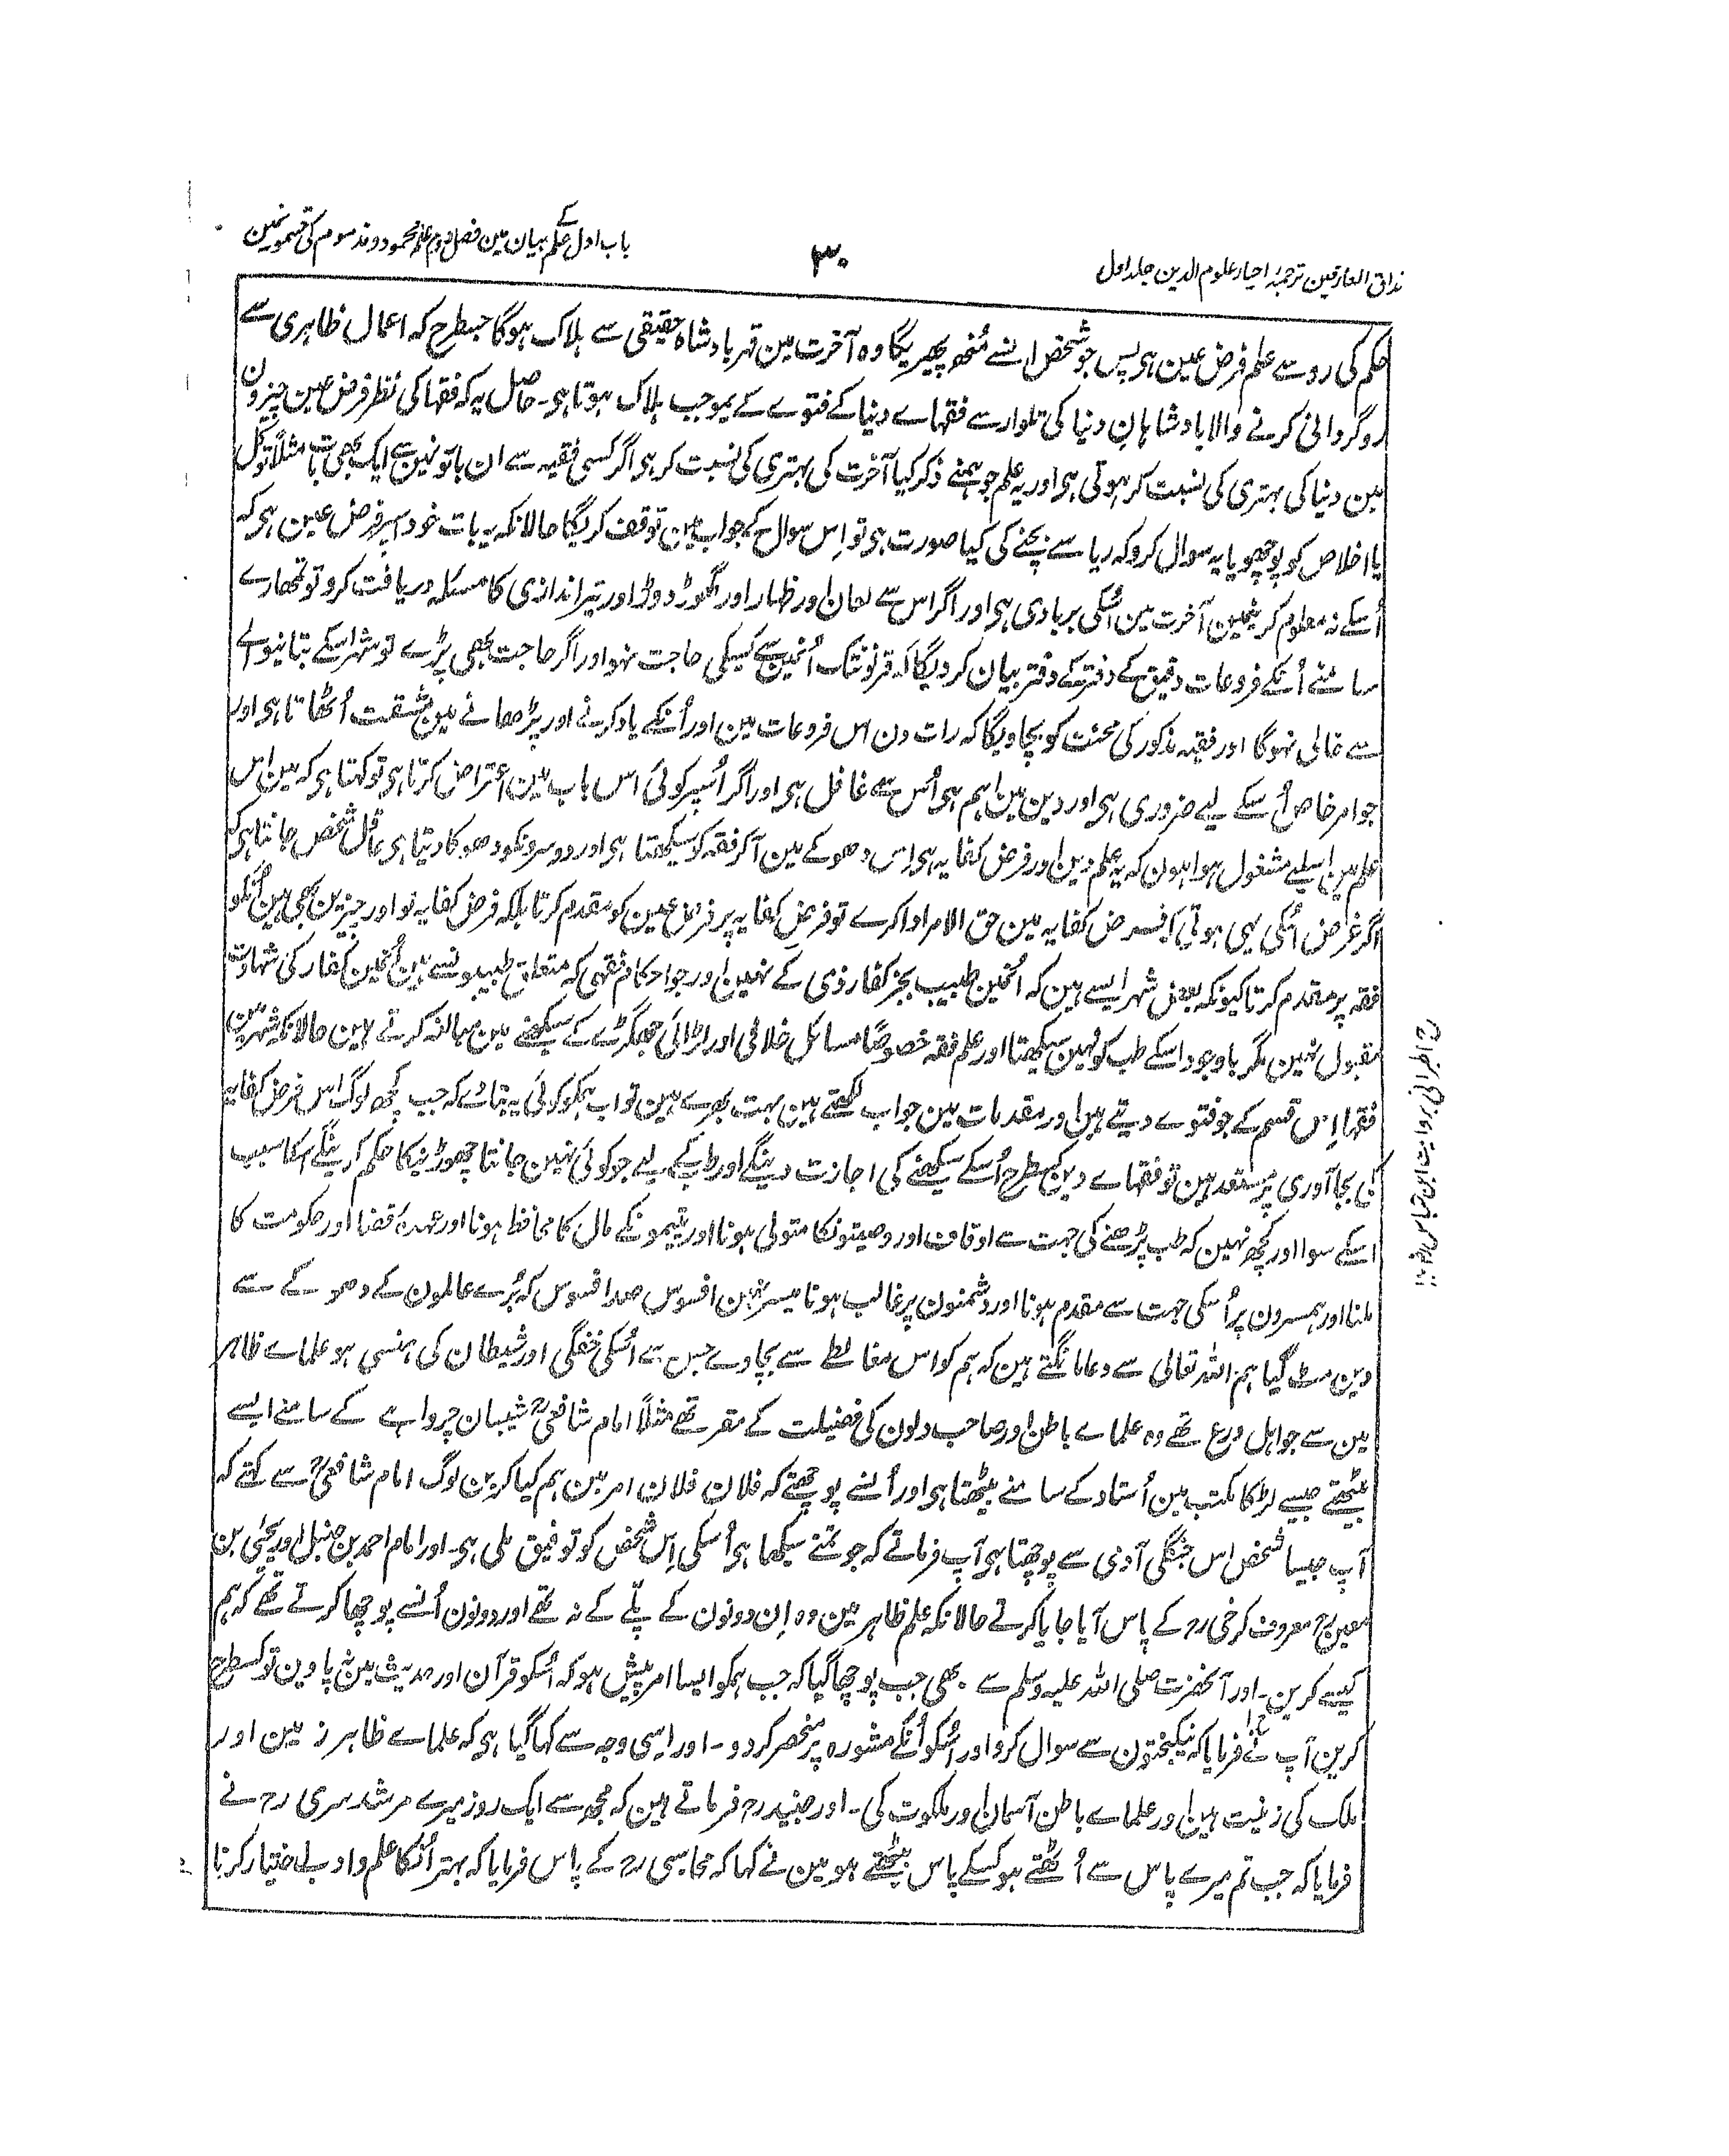 مذاق العارفین ترجمۂ احیاء علوم الدین جلد اول
۳۰
باب اول علم کے بیان مین فصل دوم علم محمود و مذموم کی قسمونمین
حکم کی رو سے علم فرض عین ہی پس جو شخص انسے مُنھ پھیریگا وہ آخرت مین قہر بادشاہ حقیقی سے ہلاک ہوگا جسطرح کہ اعمال ظاہری سے
روگردانی کرنے والا بادشاہانِ دنیا کی تلوار سے فقہاے دنیا کے فتوے کے بموجب ہلاک ہوتا ہی۔ حاصل یہ کہ فقہا کی نظر فرض عین چیزون
مین دنیا کی بہتری کی نسبت کر ہوتی ہی اور یہ علم جو ہمنے ذکر کیا آخرت کی بہتری کی نسبت کر ہی اگر کسی فقیہ سے ان باتونمین سے ایک بھی بات مثلاً توکل
یا اخلاص کو پوچھو یا یہ سوال کرو کہ ریا سے بچنے کی کیا صورت ہی تو اِس سوال کے جواب مین توقف کریگا حالانکہ یہ بات خود اسپر فرض عین ہی کہ
اُسکے نہ معلوم کرنیمین آخرت مین اُسکی بربادی ہی اور اگر اس سے لعان اور ظہار اور گھوڑدوڑ اور تیر اندازی کا مسئلہ دریافت کرو تو تمھارے
سامنے اُنکے فروعات دقیق کے دفتر کے دفتر بیان کر دیگا کہ قرنونتک اُنمین سے کسیکی حاجت نہو اور اگر حاجت بھی پڑے تو شہر اسکے بتانیوالے
سے خالی نہوگا اور فقیہ مذکور کی محنت کو بچا ویگا کہ رات دن اس فروعات مین اور اُنکے یاد کرنے اور پڑھانے مین مشقت اُٹھاتا ہی اور
جو امر خاص اُسکے لیے ضروری ہی اور دین مین اہم ہی اُس سے غافل ہی اور اگر اُسپر کوئی اس باب مین اعتراض کرتا ہی تو کہتا ہی کہ مین اس
علم مین اسلیے مشغول ہوا ہون کہ یہ علم دین اور فرض کفایہ ہی اِس دھوکے مین آکر فقہ کو سیکھتا ہی اور دوسرونکو دھوکا دیتا ہی عاقل شخص جانتا ہی کہ
اگر غرض اُسکی یہی ہوتی کہ فرض کفایہ مین حق الامر ادا کرے تو فرض کفایہ پر فرض عین کو مقدم کرتا بلکہ فرض کفایہ تو اور چیزین بھی ہین اُنکو
فقہ پر مقدم کرتا کیونکہ بعض شہر ایسے ہین کہ اُنمین طبیب بجز کفار ذمی کے نہین اور جو احکام فقہی کہ متعلق طبیبونسے ہین اُنمین کفار کی شہادت
مقبول نہین مگر باوجود اسکے طب کو نہین سیکھتا اور علم فقہ خصوصًا مسائل خلافی اور لڑائی جھگڑے کے سیکھنے مین مبالغہ کرتے ہین حالانکہ شہر مین
فقہا اِس قسم کے جو فتوے دیتے ہین اور مقدمات مین جواب لکھتے ہین بہت بھرے ہین تو اب ہمکو کوئی یہ بتائے کہ جب کچھ لوگ اس فرض کفایہ
کی بجا آوری پر مستعد ہین تو فقہاے دین کسطرح اُسکے سیکھنے کی اجازت دینگے اور طب کے لیے جو کوئی نہین جانتا چھوڑ نیکا حکم کرینگے اسکا سبب
اسکے سوا اور کچھ نہین کہ طب پڑھنے کی جہت سے اوقاف اور وصیتونکا متولی ہونا اور یتیمونکے مال کا محافظ ہونا اور عہدۂ قضا اور حکومت کا
ملنا اور ہمسرون پر اُسکی جہت سے مقدم ہونا اور دشمنون پر غالب ہونا میسر نہین افسوس صد افسوس کہ بُرے عالمون کے دھوکے سے
دین مٹ گیا ہم اللہ تعالی سے دعا مانگتے ہین کہ ہم کو اس مغالطے سے بچاوے جس سے اُسکی خفگی اور شیطان کی ہنسی ہو علماے ظاہر
مین سے جو اہل ورع تھے وہ علماے باطن اور صاحب دلون کی فضیلت کے مقر تھے مثلاً امام شافعیؒ شیبان چرواہے کے سامنے ایسے
بیٹھتے جیسے لڑکا مکتب مین اُستاد کے سامنے بیٹھتا ہی اور اُنسے پوچھتے کہ فلان فلان امر مین ہم کیا کرین لوگ امام شافعیؒ سے کہتے کہ
آپ جیسا شخص اس جنگلی آدمی سے پوچھتا ہی آپ فرماتے کہ جو تمنے سیکھا ہی اُسکی اِس شخص کو توفیق ملی ہی۔ اور امام احمد بن حنبل اور یحیٰی بن
معینؒ معروف کرخی رح کے پاس آیا جایا کرتے حالانکہ علم ظاہر مین وہ اِن دونون کے پلّے کے نہ تھے اور دونون اُنسے پوچھا کرتے تھے کہ ہم
کیسے کرین۔ اور آنحضرت صلی اللہ علیہ وسلم سے بھی جب پوچھا گیا کہ جب ہمکو ایسا امر پیش ہو کہ اُسکو قرآن اور حدیث مین نہ پاوین تو کسطرح
کرین آپ نے فرمایا کہ نیکبختون سے سوال کرو اور اُسکو اُنکے مشورہ پر منحصر کردو۔ اور اسی وجہ سے کہا گیا ہی کہ علماے ظاہر زمین اور
ملک کی زینت ہین اور علماے باطن آسمان اور ملکوت کی۔ اور جنید رح فرماتے ہین کہ مجھ سے ایک روز میرے مرشد سری رح نے
فرمایا کہ جب تم میرے پاس سے اُٹھتے ہو کسکے پاس بیٹھتے ہو مین نے کہا کہ محاسبی رح کے پاس فرمایا کہ بہتر اُنکا علم و ادب اختیار کرنا
طبرانی بروایت ابن عباس رض